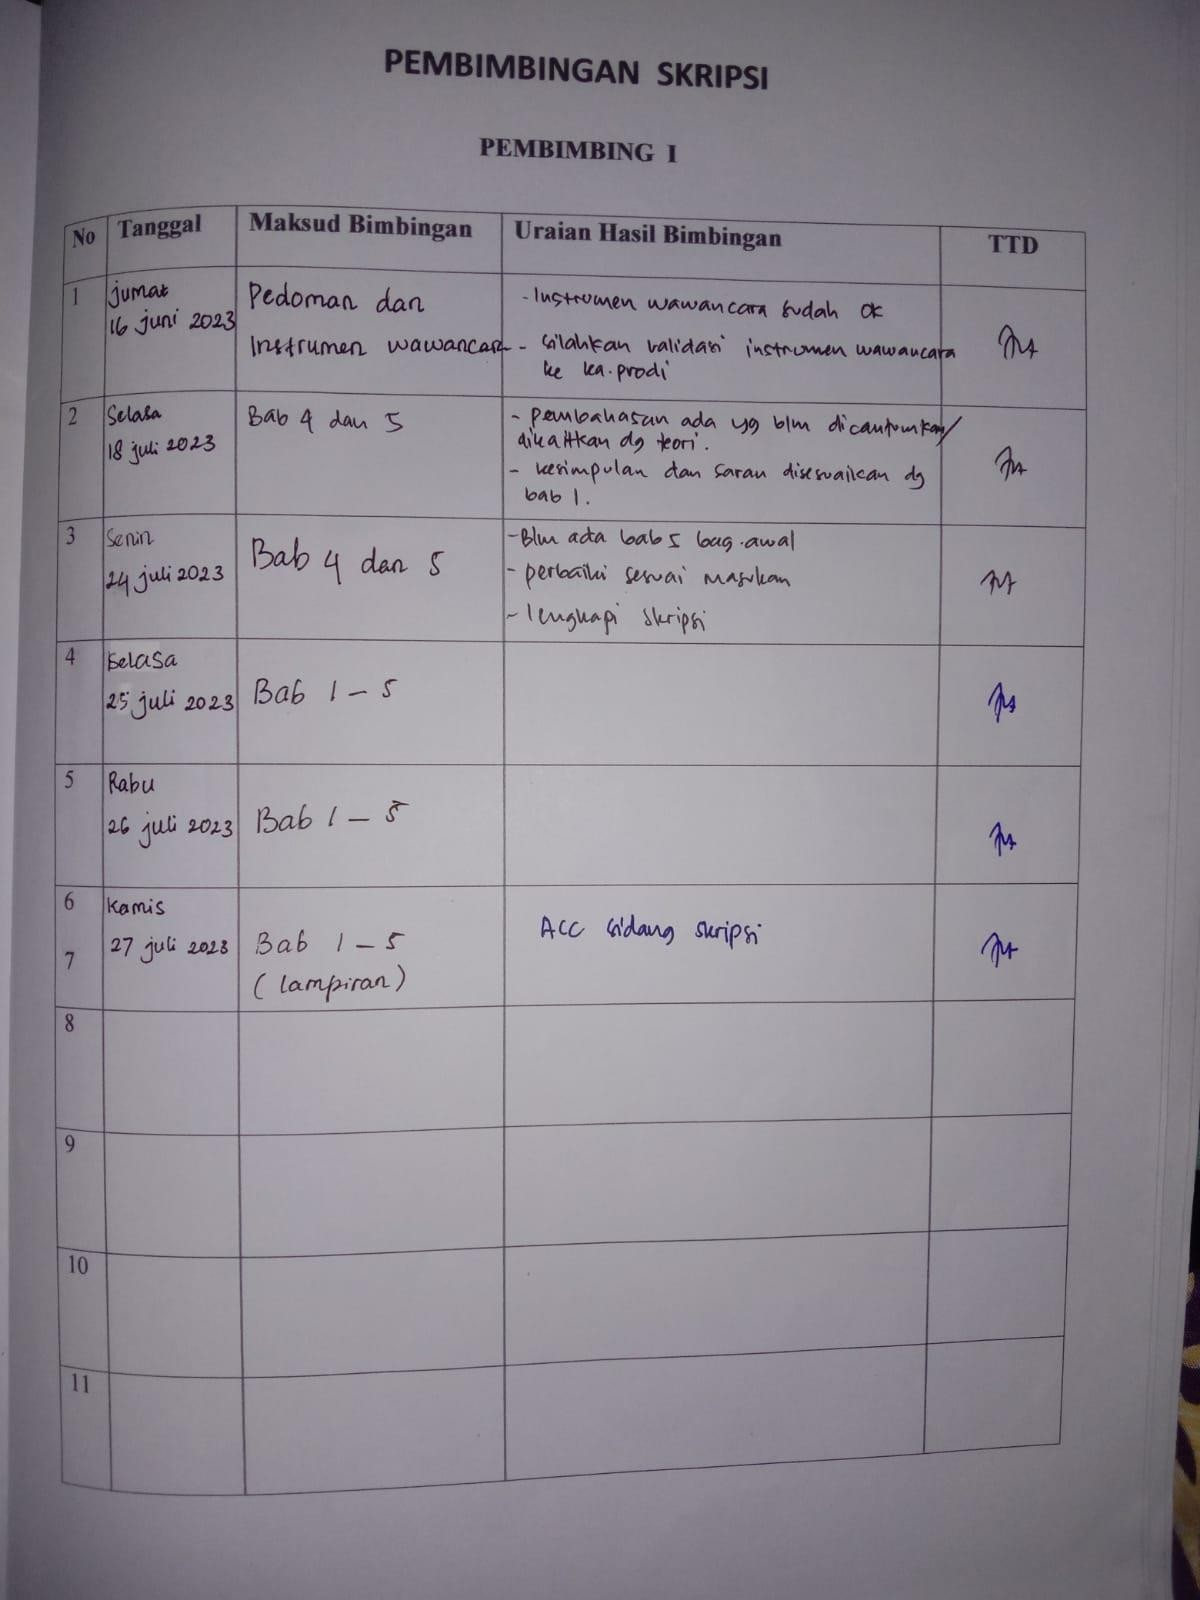 PEMBIMBINGAN SKRIPSI
PEMBIMBING I
No
Tanggal
Maksud Bimbingan
Uraian Hasil Bimbingan
TTD
1
Jumat
16 juni 2023
Pedoman dan
Instrumen wawancara
- Instrumen wawancara sudah ok
- silahkan validasi instrumen wawancara
ke ka.prodi
2
Selasa
18 juli 2023
Bab 4 dan 5
- pembahasan ada yg blm dicantumkan/
dikaitkan dg teori.
- kesimpulan dan saran disesuaikan dg
bab 1.
3
Senin
24 juli 2023
Bab 4 dan 5
- Blm ada bab 5 bag.awal
- perbaiki sesuai masukan
- lengkapi skripsi
4
Selasa
25 juli 2023
Bab 1 - 5
5
Rabu
26 juli 2023
Bab 1 - 5
6
Kamis
27 juli 2023
7
Bab 1 - 5
(lampiran)
ACC sidang skripsi
8
9
10
11